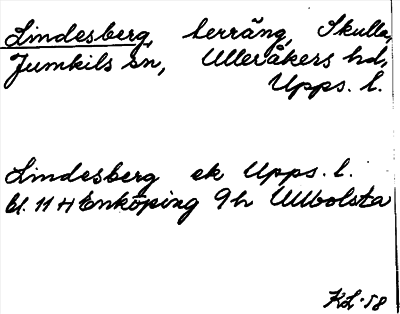 Lindesberg, terräng, Skulla,
Jumkils sn, Ulleråkers hd,
Upps. l.
Lindesberg ek Upps. l.
bl. 11 H Enköping 9h Ullbolsta
KL-58